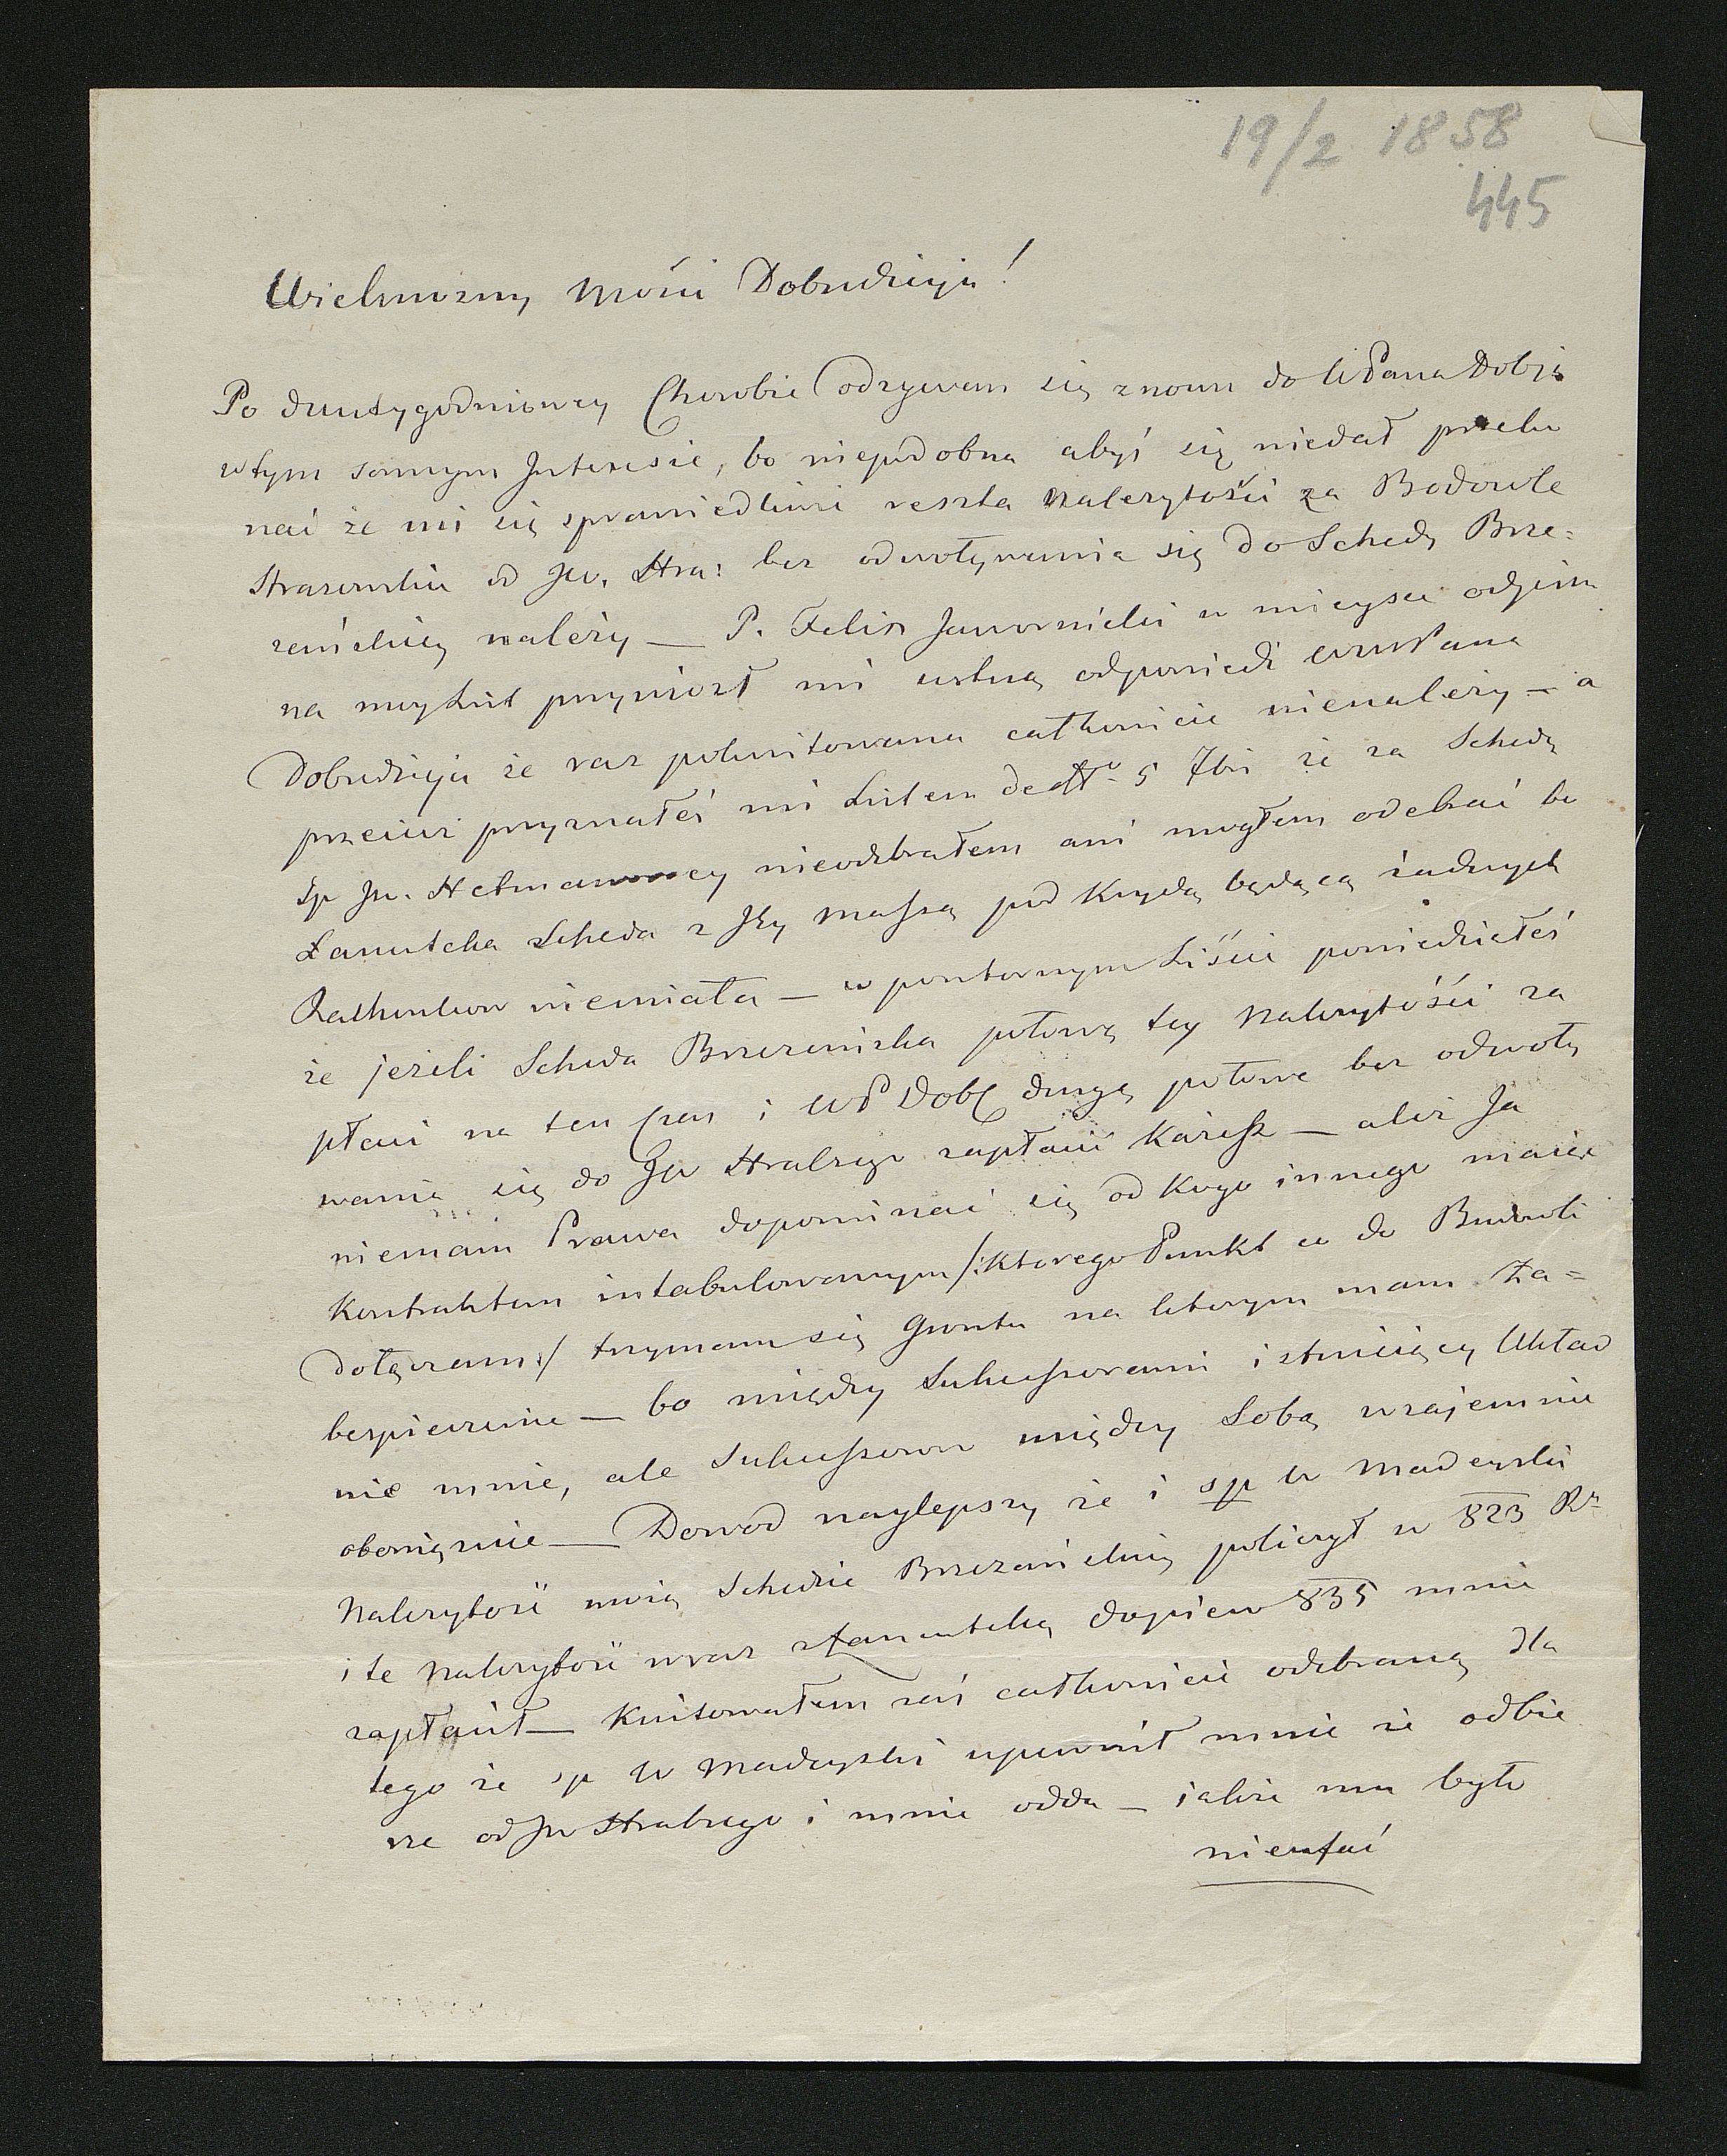 19/2 1858
445
Wielmozny Mości Dobrodzieju!
Po dwutygodniowey Chorobie odzywam się znowu do WPana Dobja
w tym samym Interesie, bo niepodobna abyś się niedał przeko
nać że mi się sprawiedliwie reszta Nalezytości za Budowle
Straszewskie od JW. Hra: bez odwoływania się do Schedy Brze=
zańskiey należy — P. Felix Jawornicki w mieysce odzewu
na moy List przyniosł mi ustną odpowiedź WW Pana
Dobrodzieja że raz pokwitowana całkowicie nienależy — a
przecież przyznałeś mi Listem de dto 5 7bri że za Schedę
śp JW. Hetmanowey nieodebrałem ani mogłem odebrać bo
Łancutcka Scheda z Jey Massą pod Krydą będącą żadnych
Rachunkow niemiała — w powtornym Liście powiedziałeś
że jeżeli Scheda Brzezańska połowę tey Nalezytości za
płaci na ten czas i WP Dobr drugą połowe bez odwoły
wania się do JW Hrabiego zapłacić każesz — aleź Ja
niemam Prawa dopominać się od Kogo innego maiąc
Kontraktem intabulowanym /: Ktorego Punkt co do Budowli
dołączam :/ trzymam się Gruntu na ktorym mam Za=
bespieczenie — bo między Sukcessorami istnieiący Układ
nie mnie, ale Sukcessorow między Sobą wzajemnie
obowiązuie — Dowod naylepszy że i śp W Madeyski
Nalezytość moią Schedzie Brzezańskiey policzył w 823 Rr
i te Nalezytość wraz z Łancutcką dopiero 835 mnie
zapłacił — Kwitowałem zaś całkowicie odebraną dla
tego że śp W Madeyski upewnił mnie że odbie
rze od JW Hrabiego i mnie odda — jakże mu było
nieufać